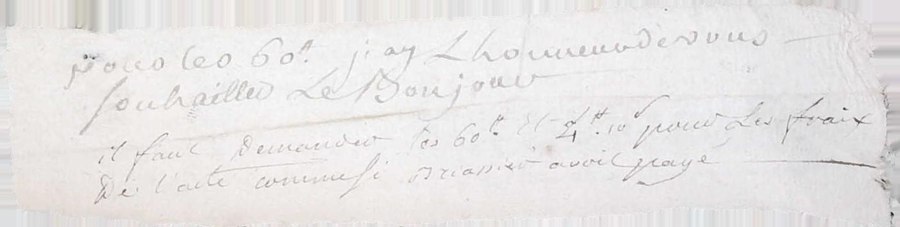 pour les 60tt j'ay Lhonneur de vous
souhaitter Le Bonjour
il faut Demander les 60tt et 4tt 10s pour Les fraix
De l'acte comme si avoit payé